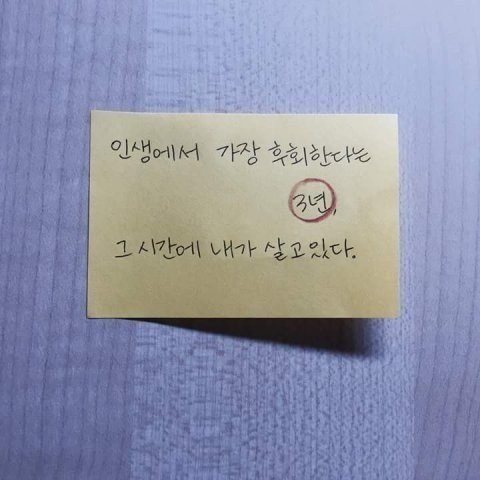 인생에서 가장 후회한다는
3년,
그 시간에 내가 살고있다.